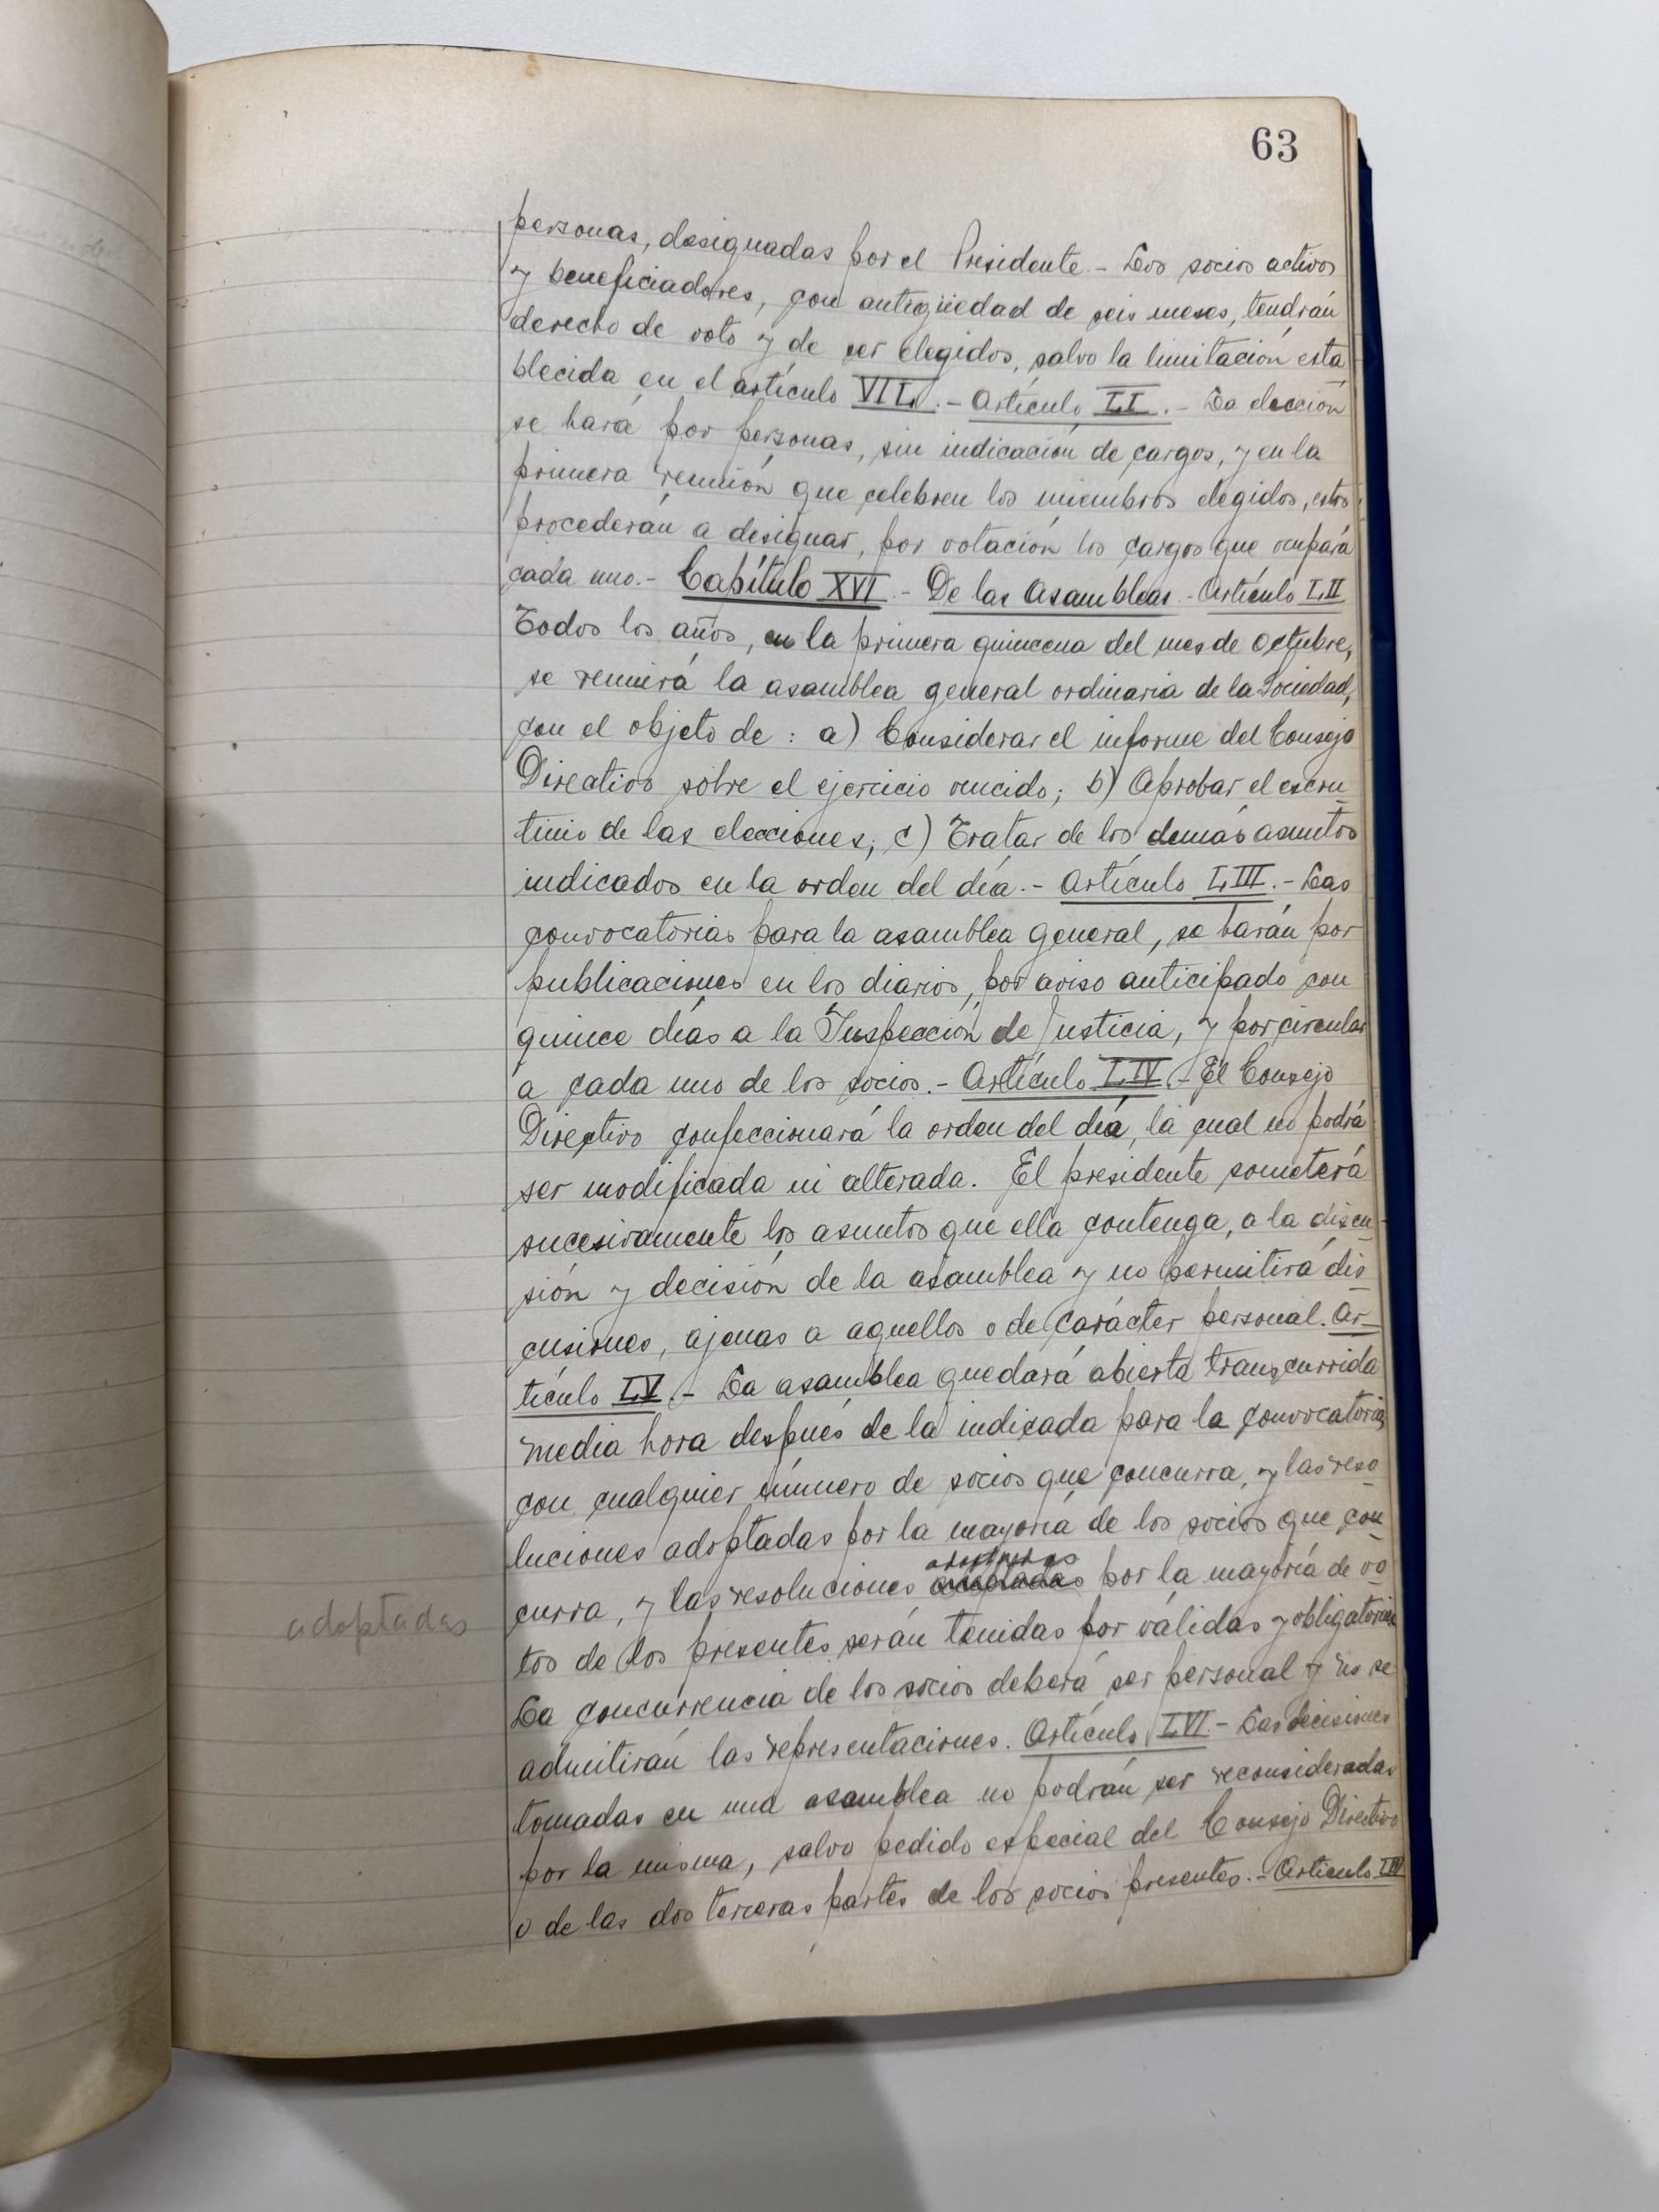 63
personas, designadas por el Presidente.- Los socios activos
y beneficiadores, con antigüedad de seis meses, tendrán
derecho de voto y de ser elegidos, salvo la limitación esta
blecida en el artículo VII.- Artículo LI.- La elección
se hará por personas, sin indicación de cargos, y en la
primera reunión que celebren los miembros elegidos, estos
procederán a designar, por votación los cargos que ocupará
cada uno.- Capítulo XVI.- De las Asambleas.- Artículo LII
Todos los años, en la primera quincena del mes de Octubre,
se reunirá la asamblea general ordinaria de la Sociedad,
con el objeto de: a) Considerar el informe del Consejo
Directivo sobre el ejercicio vencido; b) Aprobar el escru-
tinio de las elecciones; c) Tratar de los demás asuntos
indicados en la orden del día.- Artículo LIII.- Las
convocatorias para la asamblea general, se harán por
publicaciones en los diarios, por aviso anticipado con
quince días a la Inspección de Justicia, y por circular
a cada uno de los socios.- Artículo LIV.- El Consejo
Directivo confeccionará la orden del día, la cual no podrá
ser modificada ni alterada. El presidente someterá
sucesivamente los asuntos que ella contenga, a la discu-
sión y decisión de la asamblea y no permitirá dis-
cusiones, ajenas a aquellos o de carácter personal. Ar-
tículo LV.- La asamblea quedará abierta transcurrida
media hora después de la indicada para la convocatoria,
con cualquier número de socios que concurra, y las reso-
luciones adoptadas por la mayoría de los socios que con-
adoptadas
curra, y las resoluciones por la mayoría de vo-
adoptadas
tos de los presentes serán tenidas por válidas y obligatorias
La concurrencia de los socios deberá ser personal y no se
admitirán las representaciones. Artículo LVI.- Las decisiones
tomadas en una asamblea no podrán ser reconsideradas
por la misma, salvo pedido especial del Consejo Directivo
o de las dos terceras partes de los socios presentes.- Artículo